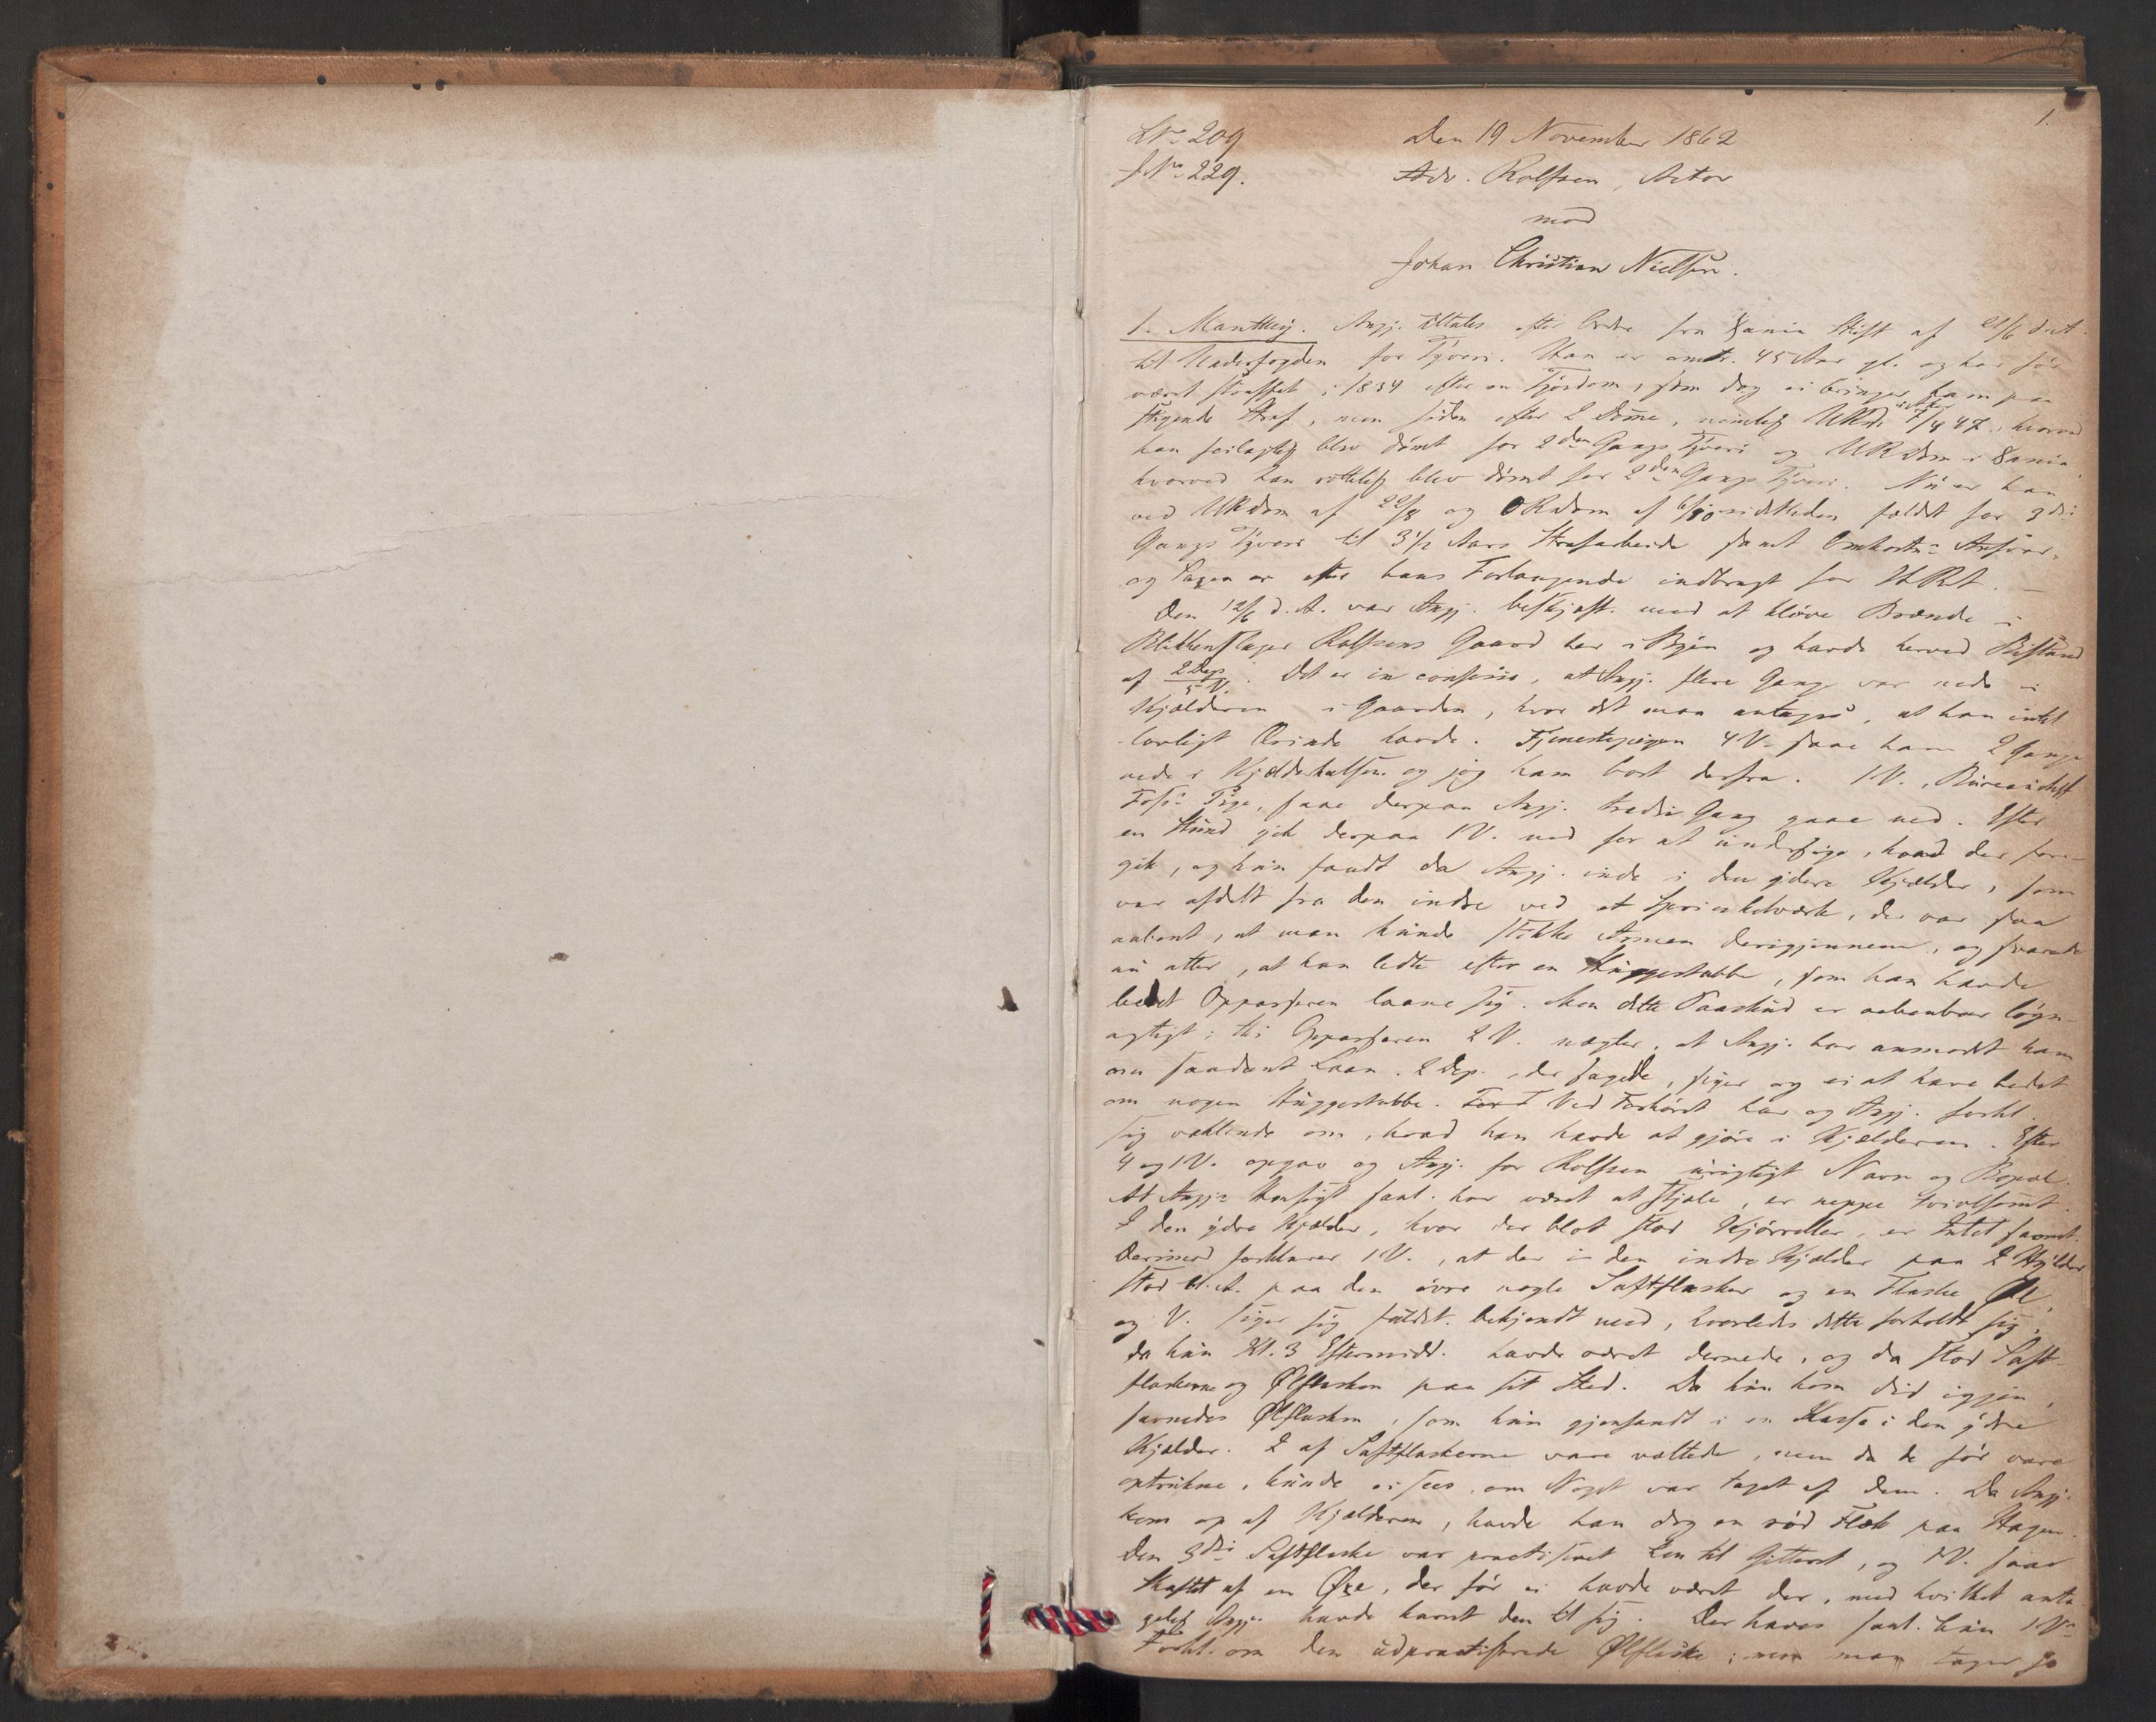 1.
LNo 209
Den 19 November 1862
JNo 229.
Adv. Rolfsen, Actor
mod
Johan Christian Nielsen.
1. Manthey. Angj. tiltales efter Ordre fra Xania Stift af 21/6 d. A.
til Underfogden for Tyveri. Han er omtr. 45 Aar gl. og har før
været straffet i 1834 efter en Tyvsdom, som dog ei bringer ham paa
stigende Straf, men siden efter 2 Domme, nemlig URD. 7/4 47, hvorved
han feilagtig blev dømt for 2den Gangs Tyveri og URDom i Xania,
hvorved han rettelig blev dømt for 2den Gangs Tyveri. Nu er han
ved URdom af 22/8 og ORdom af 6/10 sidstleden fældet for 3die
Gangs Tyveri til 3 1/2 Aars Strafarbeide samt Omkostn: Ansvar,
og Sagen er efter hans Forlangende indbragt for HRet. –
Den 12/6 d. A. var Angj. beskjæft. med at kløve Brænde i
Blikkenslager Rolfsens Gaard her i Byen og havde herved Bistand
af 2 Dep. 5 V. Det er in confesso, at Angj. flere Gange var nede i
Kjælderen i Gaarden, hvor det maa antages, at han intet
lovligt Ærinde havde. Tjenestepigen 4 V. saae ham 2 Gange
nede i Kjælderhalsen og jog ham bort derfra. 1 V.,
Pige, saae derpaa Angj. tredie Gang gaae ned. Efter
en Stund gik derpaa 1 V. ned for at undersøge, hvad der fore-
gik, og hun fandt da Angj. inde i den ydere Kjælder, som
var afdelt fra den indre ved et Sprinkelværk, der var saa
aabent, at man kunde stikke Armen derigjennem, og svarede
nu atter, at han ledte efter en Huggestabbe, som han havde
bedet Opparseren laane sig. Men dette Paaskud er aabenbar løgn-
agtigt; thi Opparseren 2 V. nægter, at Angj. har anmodet ham
om saadant Laan. 2 Dep., der sagede, siger og ei at have bedet
om nogen Huggestabbe. Ved Forhøret har og Angj. forkl.
sig vaklende om, hvad han havde at gjøre i Kjælderen. Efter
4 og 1 V. opgav og Angj. for Rolfsen urigtigt Navn og Bopæl.
At Angj:s Hensigt saal. har været at stjæle, er neppe tvivlsomt.
I den ydre Kjælder, hvor der blot stod Kjørreller, er Intet savnet.
Derimod forklarer 1 V., at der i den indre Kjælder paa 2 Hylder
stod bl. A. paa den øvre nogle Saftflasker og en Flaske Øl,
og V. siger sig fuldst. bekjendt med, hvorledes dette forholdt sig,
da hun Kl. 3 Eftermidd. havde været dernede, og da stod Saft-
flaskerne og Ølflasken paa sit Sted. Da hun kom did igjen,
savnedes Ølflasken, som hun gjenfandt i en Kasse i den ydre
Kjælder. 2 af Saftflaskerne vare væltede, men da de før vare
optrukne, kunde ei sees, om Noget var taget af dem. Da Angj.
kom op af Kjælderen, havde han dog en rød Flæk paa Hagen.
Den 3die Saftflaske var practiseret hen til Gitteret, og 1 V. saae
Skaftet af en Øxe, der før ei havde været der, med hvilket anta-
gelig Angj. havde havet den til sig. Der haves saal. kun 1 V:s
Forkl. om den udpractiserede Ølflaske; men man tager jo